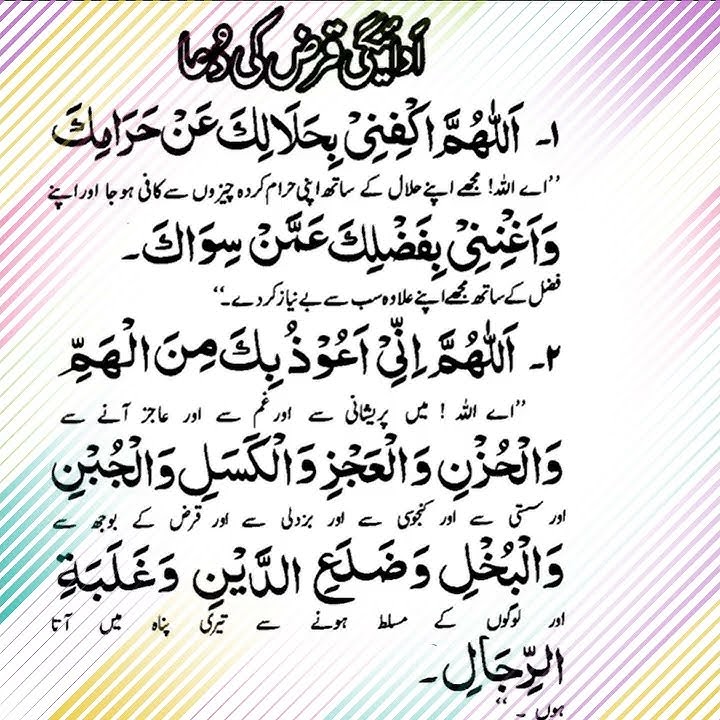 اَدائیگی قرض کی دُعا
۱۔ اَللّٰهُمَّ اكْفِنِیْ بِحَلَالِكَ عَنْ حَرَامِكَ
’’اے اللہ! مجھے اپنے حلال کے ساتھ اپنی حرام کردہ چیزوں سے کافی ہو جا اور اپنے
وَاَغْنِنِیْ بِفَضْلِكَ عَمَّنْ سِوَاكَ۔
فضل کے ساتھ مجھے اپنے علاوہ سب سے بے نیاز کردے۔‘‘
۲۔ اَللّٰهُمَّ اِنِّیْ اَعُوْذُ بِكَ مِنَ الْهَمِّ
’’اے اللہ ! میں پریشانی سے اور غم سے اور عاجز آنے سے
وَالْحُزْنِ وَالْعَجْزِ وَالْكَسَلِ وَالْجُبْنِ
اور سستی سے اور کنجوسی سے اور بزدلی سے اور قرض کے بوجھ سے
وَالْبُخْلِ وَضَلَعِ الدَّيْنِ وَغَلَبَةِ
اور لوگوں کے مسلط ہونے سے تیری پناہ میں آتا
الرِّجَالِ۔
ہوں ۔‘‘